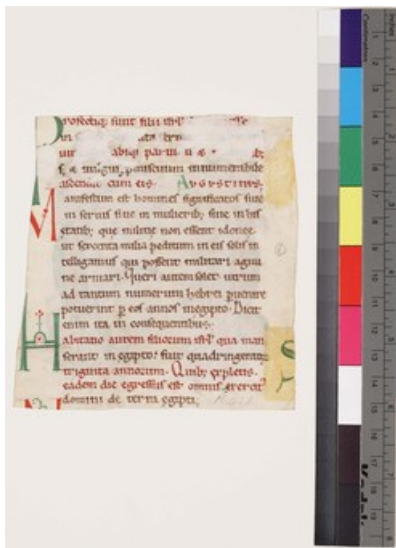 Profectiq; sunt filii isrl
in
uir absq; paruu
s; & uulgus promiscuum innumerabile
ascendit cum eis. AUGUSTINUS.
Manifestum est homines significatos siue
in seruis siue in mulierib; siue in his
etatib; que militie non essent idonee.
ut sexcenta milia peditum in eis solis in
telligamus qui possent militari agmi
ne armari. Queri autem solet utrum
ad tantum numerum hebrei peruenire
potuerint p eos annos inegypto. Dicit
enim ita in consequentibus;
Habitatio autem filiorum isrl qua man
serant in egypto. fuit quadringentoru
triginta annorum. Quib; expletis.
eadem die egressus est omnis exercit
domini de terra egypti;
Kodak
Inches
Centimetres